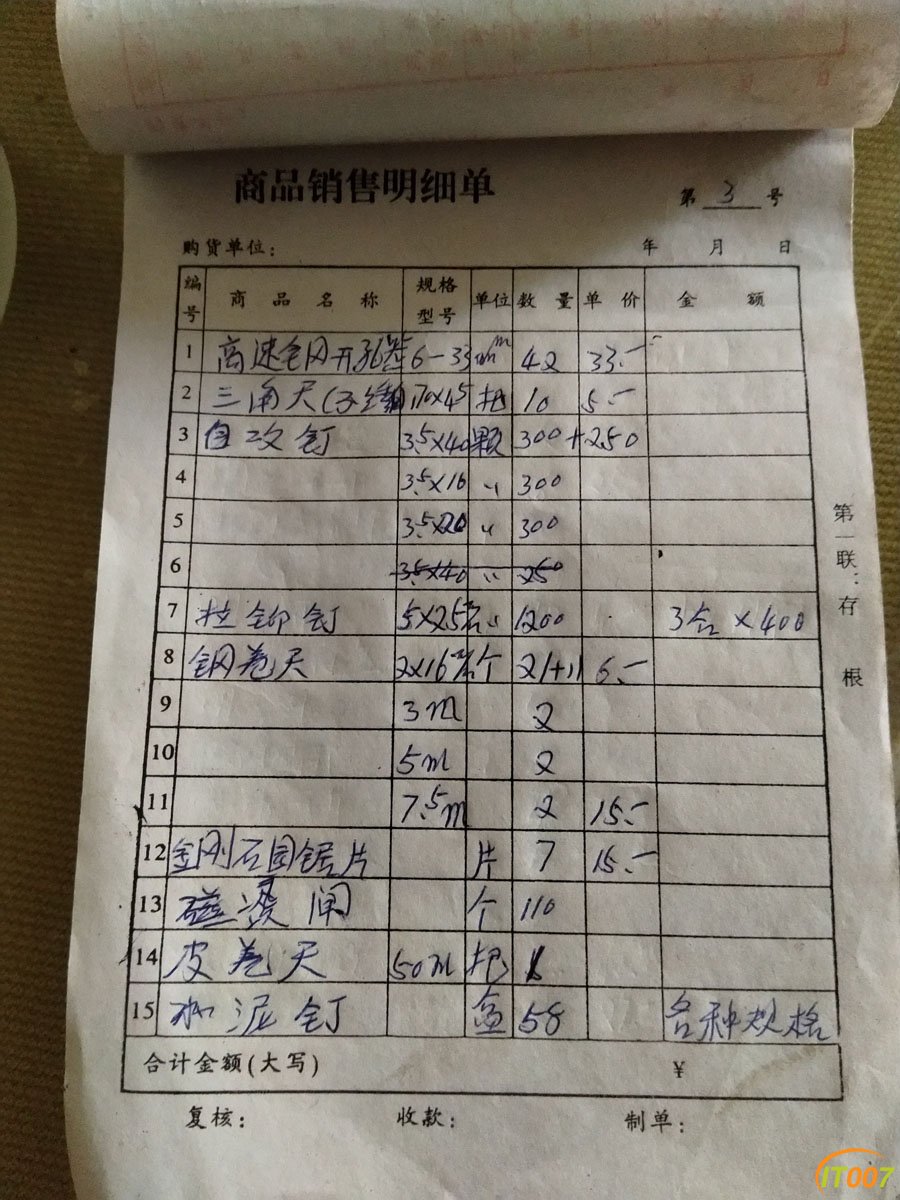 商品销售明细单
第 3 号
购货单位: 年 月 日
编号 商品名称 规格型号 单位 数量 单价 金额
1 高速钢开孔器 6-33 mm 42 33.-
2 三角尺 170×45 把 10 5.-
3 自攻钉 3.5×40 颗 300+250
4 3.5×16 〃 300
5 3.5×20 〃 300
6 3.5×40 〃 250
7 拉铆钉 5×25 〃 1200 3盒×400
8 钢卷尺 2×16 个 21+11 6.-
9 3m 2
10 5m 2
11 7.5m 2 15.-
12 金刚石园锯片 片 7 15.-
13 磁 阀 个 110
14 皮卷尺 50m 把
15 水泥钉 盒 58 各种规格
合计金额(大写) ¥
复核: 收款: 制单:
第一联:存根
IT007